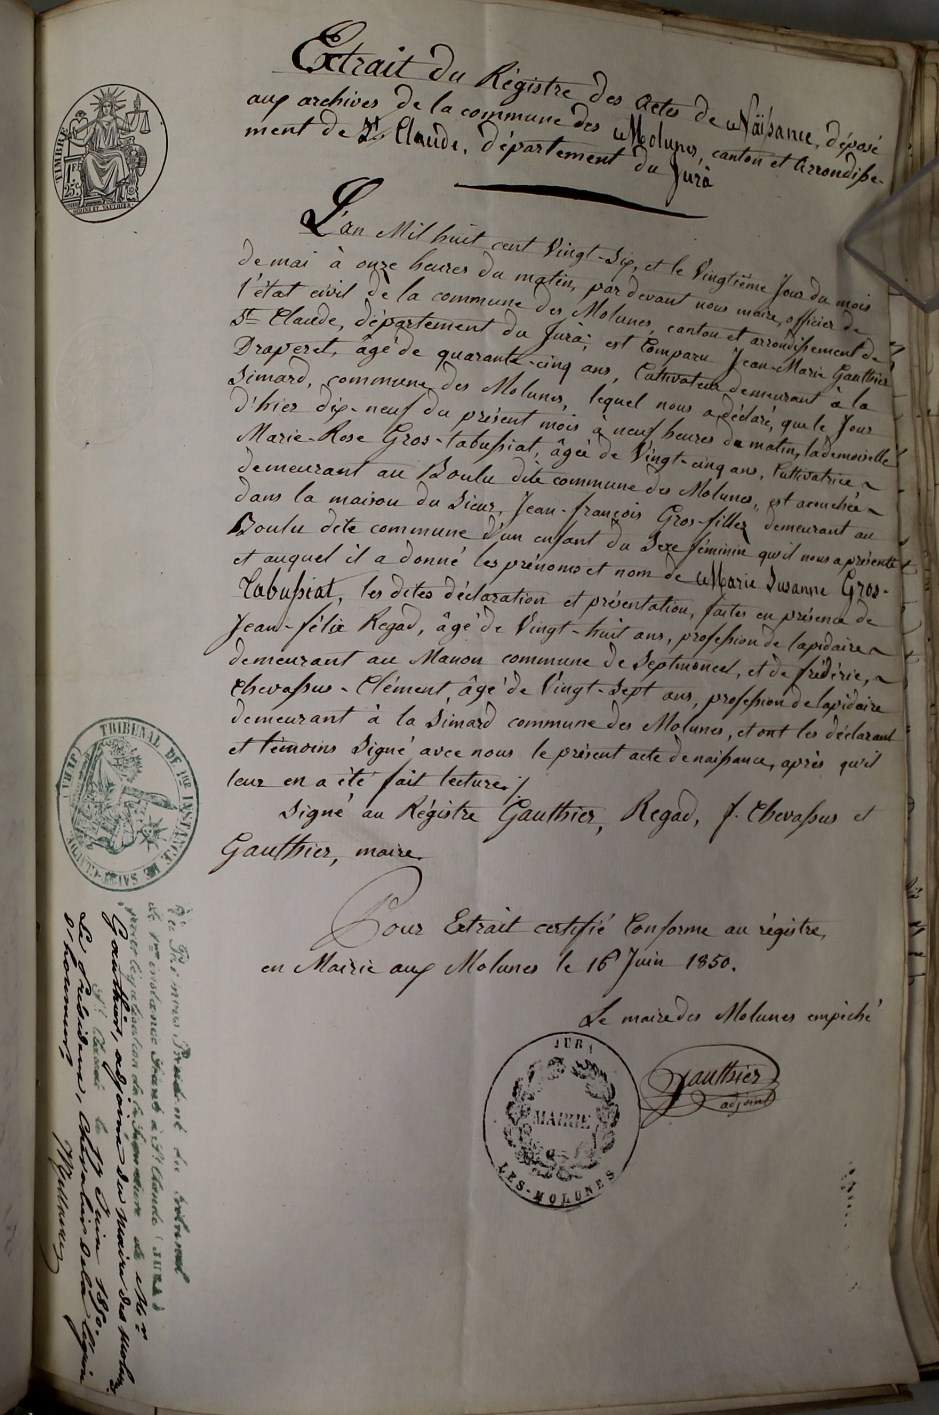 Extrait du Régistre des actes de Naissance, déposé
aux archives de la commune des Molunes, canton et Arrondisse-
ment de St Claude, département du Jura
TIMBRE
1F
25c
L'an Mil huit cent Vingt-Six, et le Vingtième Jour du mois
de mai à onze heures du matin, par devant nous maire, officier de
l'état civil de la commune des Molunes, canton et arrondissement de
St Claude, département du Jura; est Comparu Jean-Marie Gauthier
Draperet, âgé de quarante-cinq ans, Cultivateur demeurant à la
Simard, commune des Molunes, lequel nous a déclaré, que le Jour
d'hier dix-neuf du présent mois à neuf heures du matin, la demoiselle
Marie-Rose Gros-tabussiat, âgée de Vingt-cinq ans, Cultivatrice
demeurant au Boulu dite commune des Molunes, est accouchée
dans la maison du Sieur, Jean-françois Gros-fillez demeurant au
Boulu dite commune d'un enfant du Sexe féminin qu'il nous a présenté
et auquel il a donné les prénoms et nom de Marie Susanne Gros-
Tabussiat, les dites déclaration et présentation, faites en présence de
Jean-félix Regad, âgé de Vingt-huit ans, profession de lapidaire
demeurant au Manon commune de Septmoncel, et de frédéric,
Chevassus-Clément, âgé de Vingt-Sept ans, profession de lapidaire
demeurant à la Simard commune des Molunes, et ont les déclarant
et témoins Signé avec nous le présent acte de naissance, après qu'il
leur en a été fait lecture./.
Signé au Régistre Gauthier, Regad, f. Chevassus et
Gauthier, maire.
Pour Extrait certifié Conforme au régistre,
en Mairie aux Molunes le 16 Juin 1850.
Le maire des Molunes empêché
Gauthier
adjoint
JURA
MAIRIE
LES-MOLUNES
TRIBUNAL DE 1RE INSTANCE DE SAINT-CLAUDE (JURA)
Président du tribunal
de 1re instance séant à St Claude (JURA)
pour légalisation de la signature de Mr
Gauthier, adjoint du maire des Molunes
St Claude le 17 Juin 1850.
Le Président, Chevalier de la légion
d'honneur,